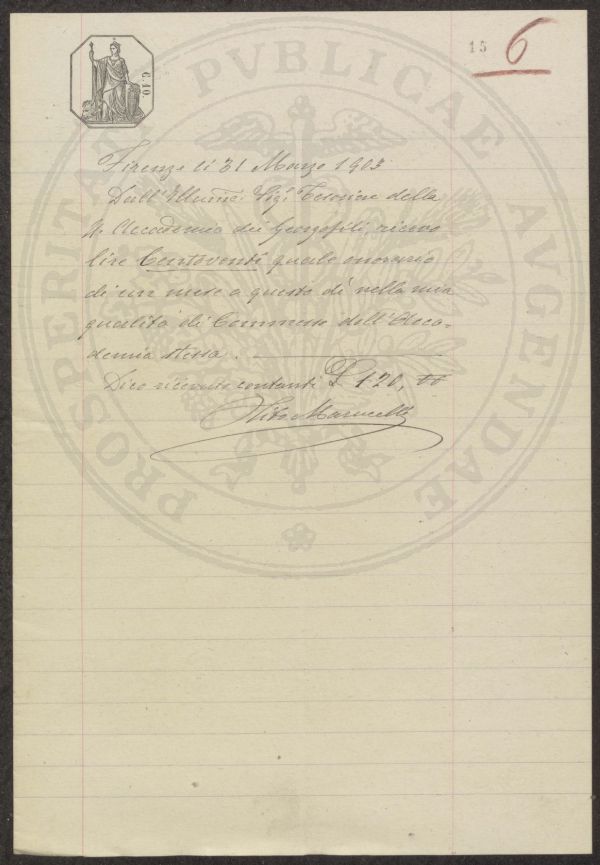 15
6
C. 10.
Firenze li 31 Marzo 1903
Dall' Illmo: Sigr Tesoriere della
R. Accademia dei Georgofili, ricevo
lire Centoventi quale onorario
di un mese a questo dì nella mia
qualità di Commesso dell' Acca-
demia stessa.
Dico ricevute contanti £ 120,
Marucelli
PROSPERITATI PVBLICAE AVGENDAE